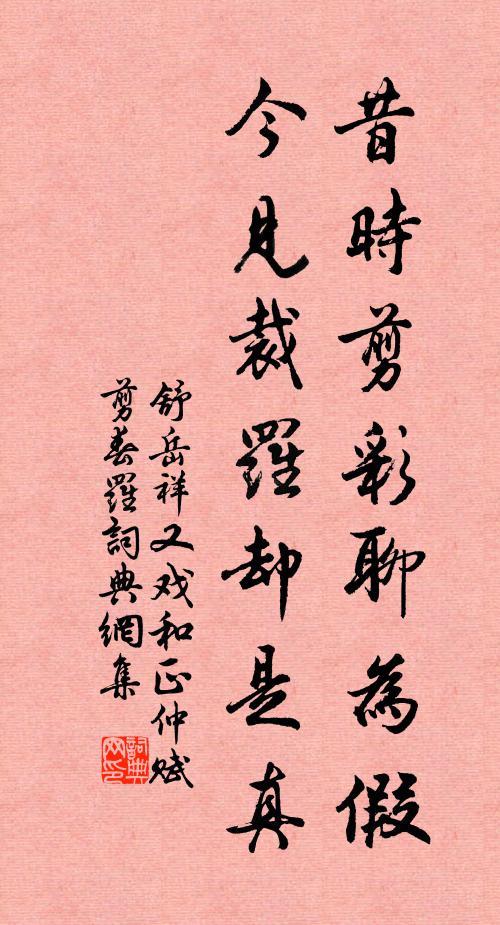 昔時剪彩聊為假
今見裁羅却是真
舒岳祥又戏和正仲赋
剪春羅詞典網集
詞典网印